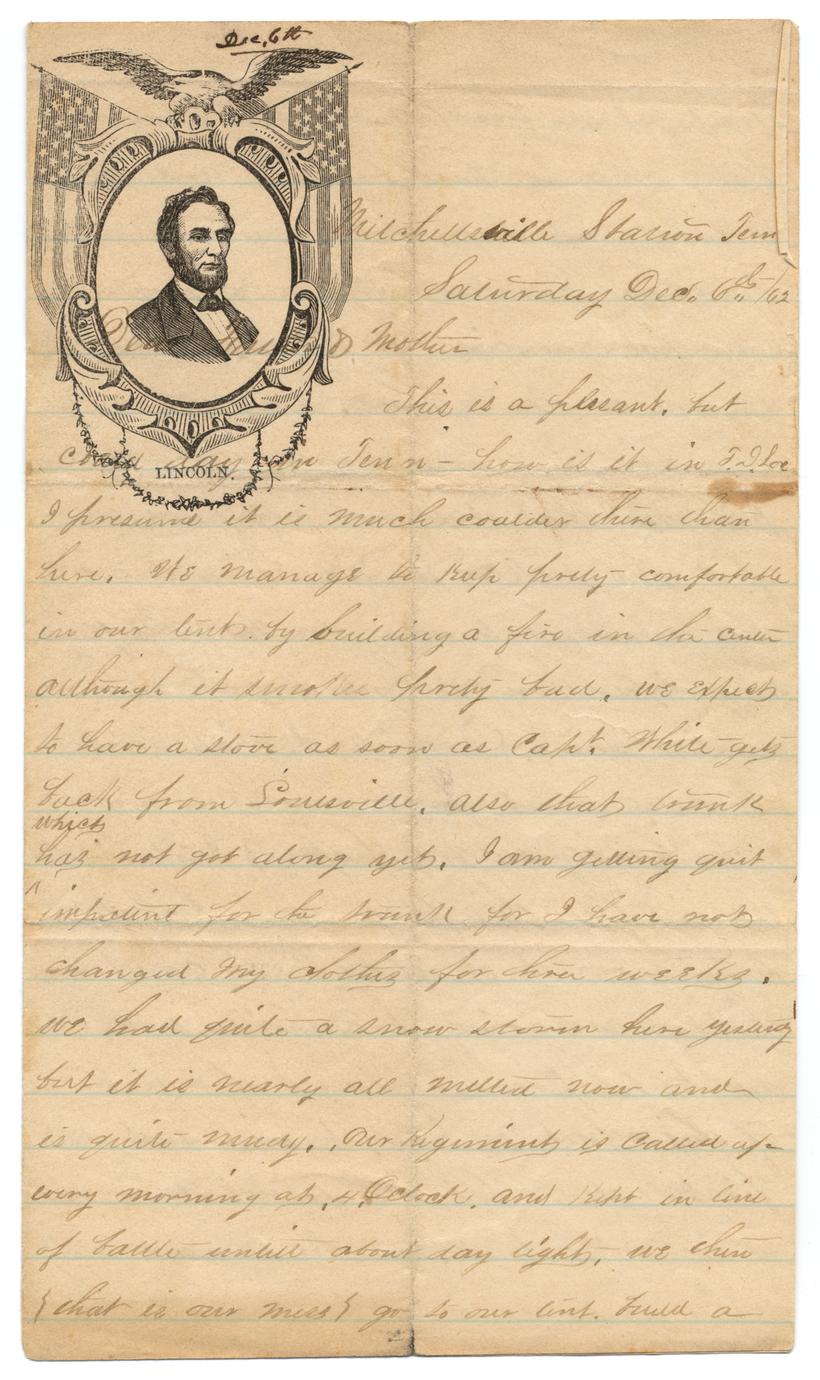 Dec, 6th
Mitchellsville Station Tenn
Saturday Dec. 6th /62
Dear Mother
This is a plesant, but
coald day in Tenn - how is it in
I presume it is much coalder there than
here. We manage to keep prety comfortable
in our tent by building a fire in the center
although it smokes prety bad, we expect
to have a stove as soon as Capt. White gets
back from Louisville, also that trunk
which
has not got along yet. I am getting quit
impatint for the trunk for I have not
changed my clothes for three weeks.
we had quite a snow storm here yesterday
but it is nearly all melted now and
is quite mudy. Our Regiment is called up
every morning at 4 Oclock, and kept in line
of battle untill about day light, we then
{that is our mess} go to our tent. build a
LINCOLN.